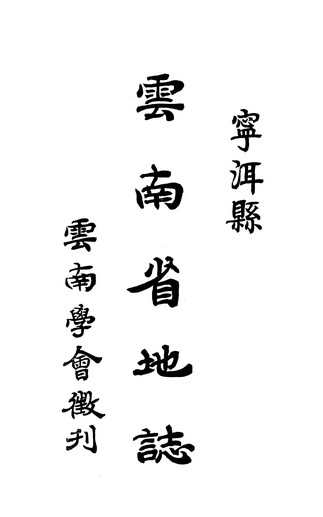 寧洱縣
雲南省地誌
雲南學會徵刊